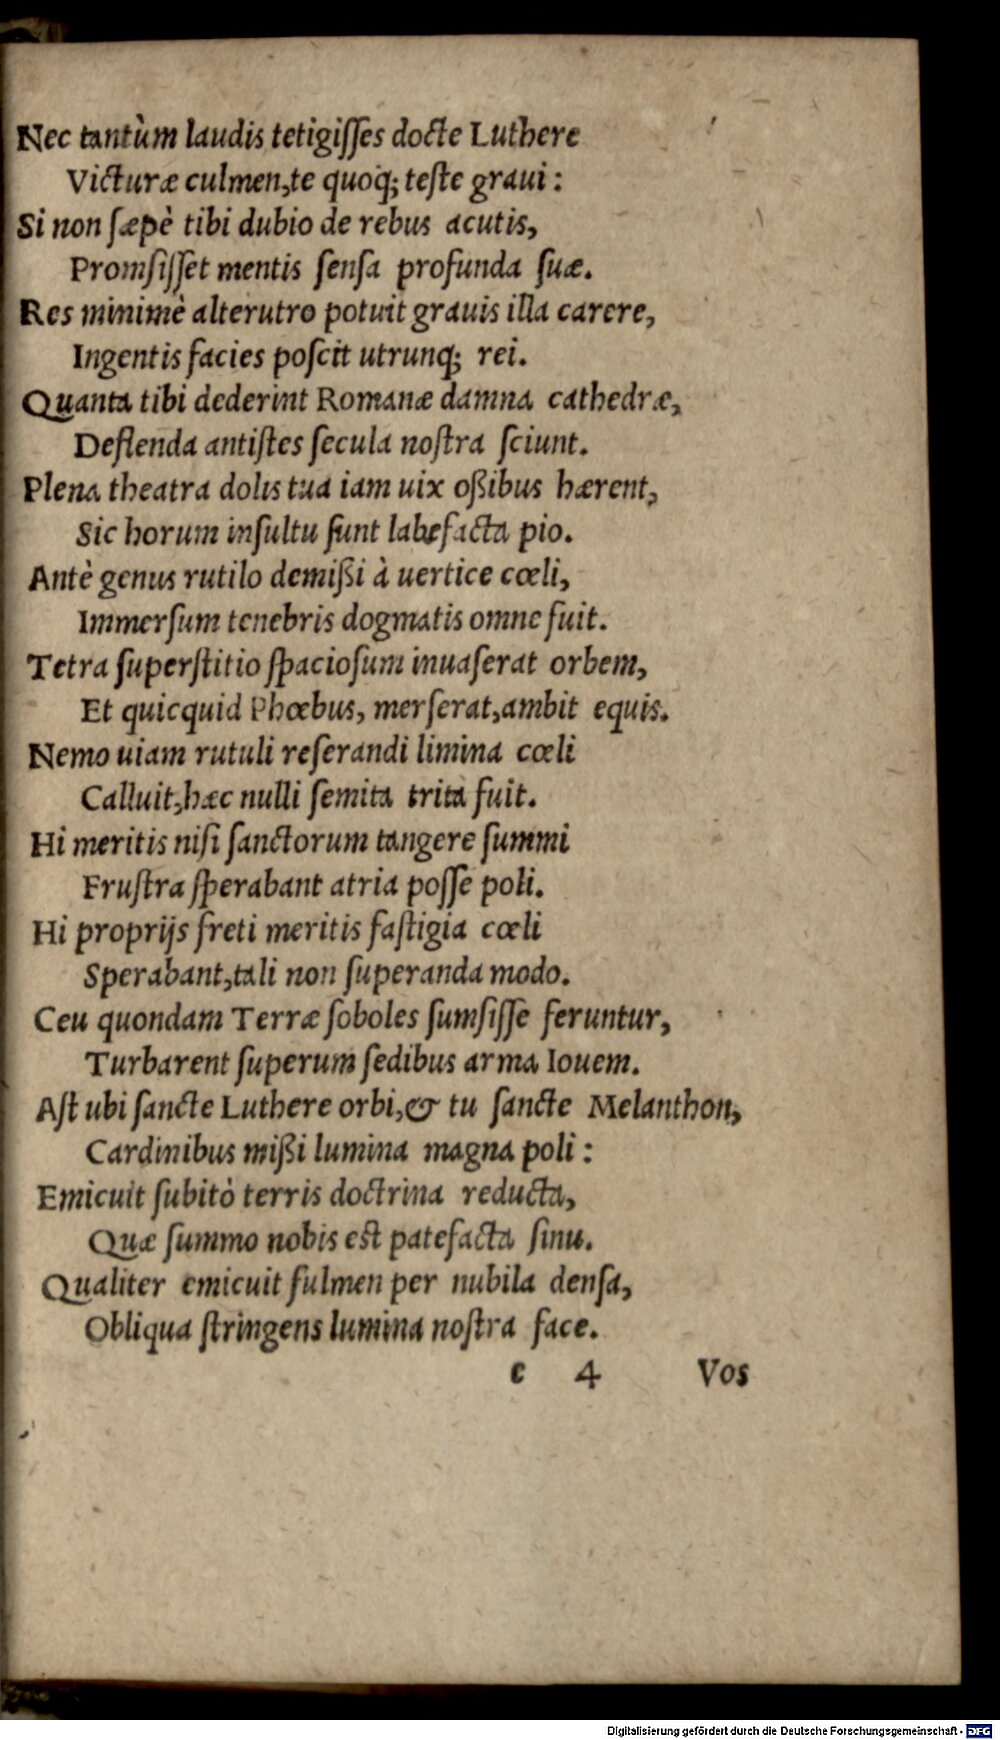 Nec tantùm laudis tetigiſſes docte Luthere
Victuræ culmen, te quoq; teſte graui:
Si non ſæpè tibi dubio de rebus acutis,
Promſiſſet mentis ſenſa profunda ſuæ.
Res minimè alterutro potuit grauis illa carere,
Ingentis facies poſcit utrunq; rei.
Quanta tibi dederint Romanæ damna cathedræ,
Deflenda antiſtes ſecula noſtra ſciunt.
Plena theatra dolis tua iam uix oßibus hærent,
Sic horum inſultu ſunt labefacta pio.
Antè genus rutilo demißi à uertice cœli,
Immerſum tenebris dogmatis omne fuit.
Tetra ſuperſtitio ſpacioſum inuaſerat orbem,
Et quicquid Phœbus, merſerat, ambit equis.
Nemo uiam rutuli reſerandi limina cœli
Calluit, hæc nulli ſemita trita fuit.
Hi meritis niſi ſanctorum tangere ſummi
Fruſtra ſperabant atria poſſe poli.
Hi proprijs freti meritis faſtigia cœli
Sperabant, tali non ſuperanda modo.
Ceu quondam Terræ ſoboles ſumſiſſe feruntur,
Turbarent ſuperum ſedibus arma Iouem.
Aſt ubi ſancte Luthere orbi, & tu ſancte Melanthon,
Cardinibus mißi lumina magna poli:
Emicuit ſubitò terris doctrina reducta,
Quæ ſummo nobis eſt patefacta ſinu.
Qualiter emicuit fulmen per nubila denſa,
Obliqua ſtringens lumina noſtra face.
c 4 Vos
Digitalisierung gefördert durch die Deutsche Forschungsgemeinschaft - DFG